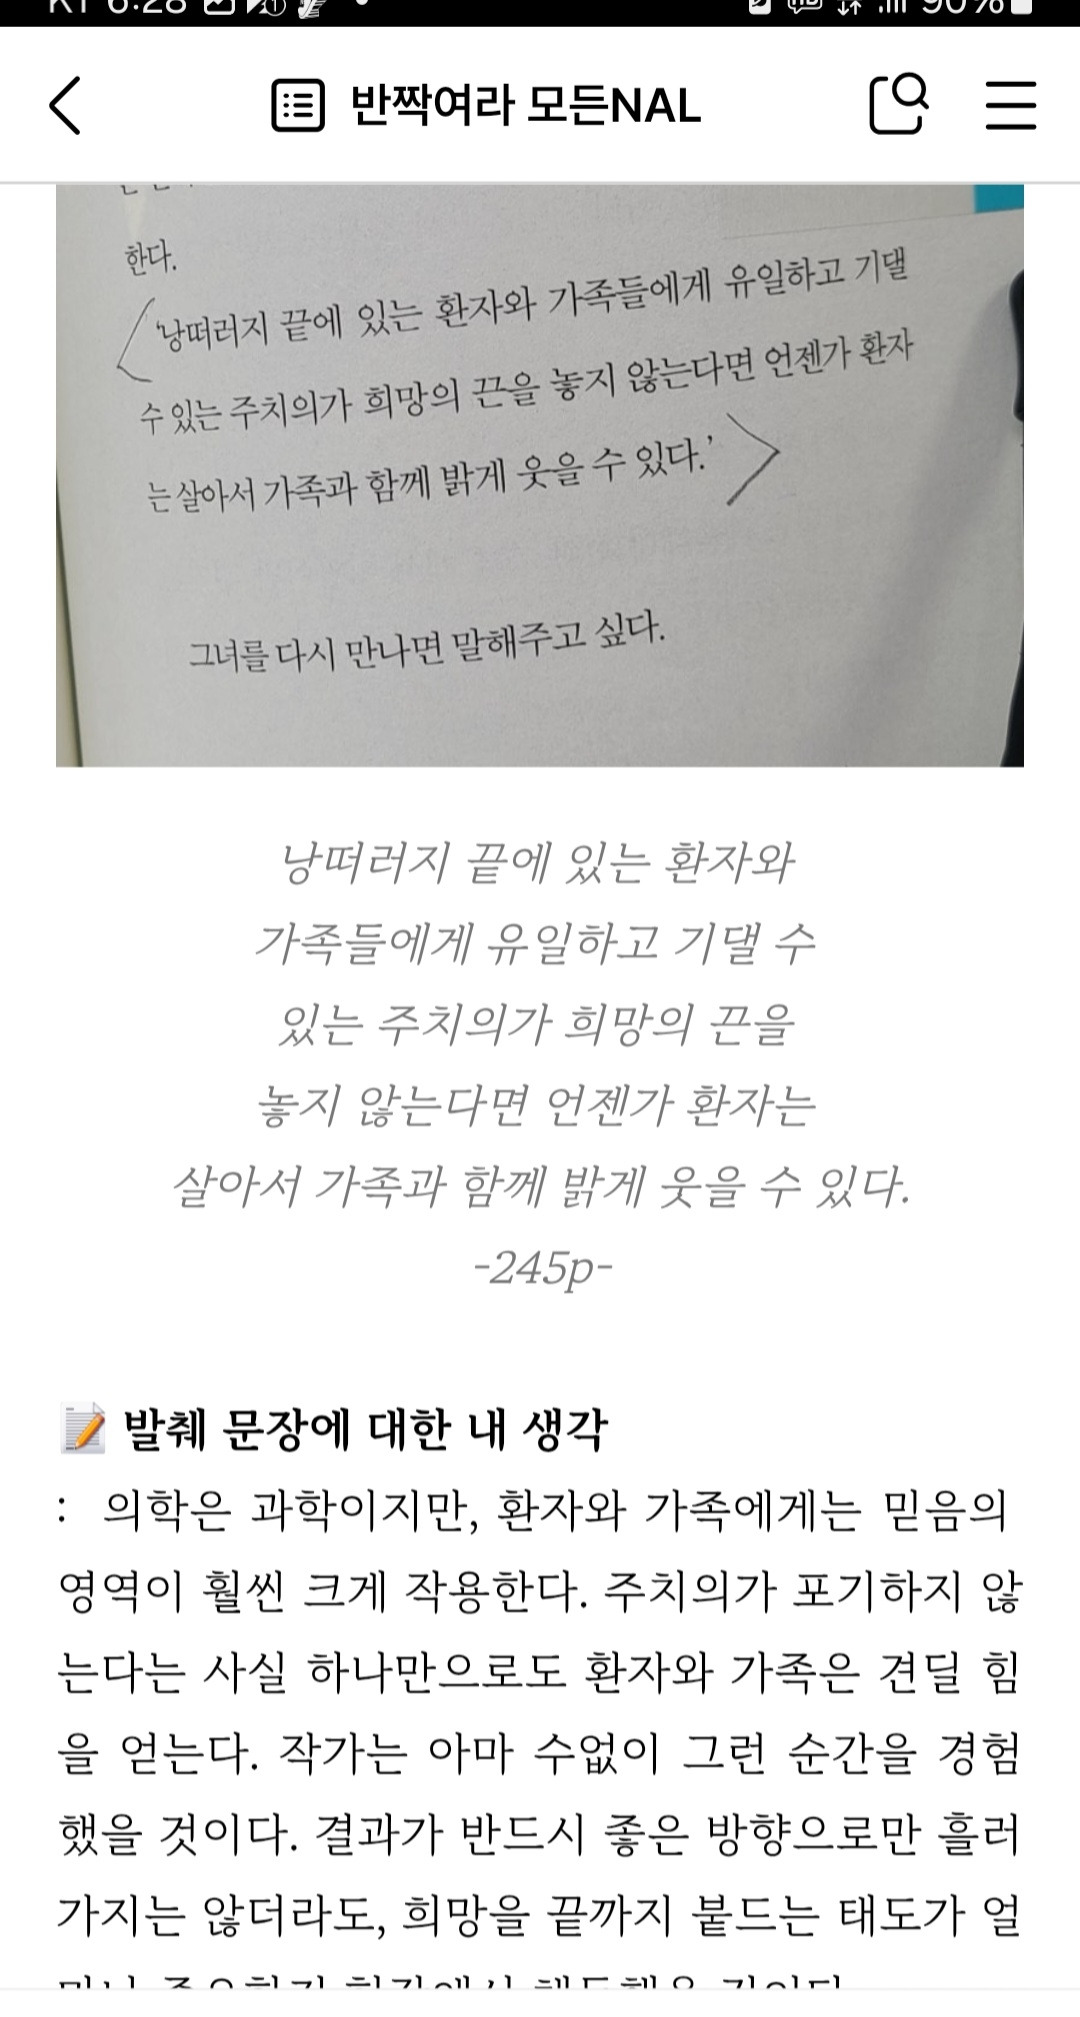 KT 6:28
90%
반짝여라 모든NAL
한다.
'낭떠러지 끝에 있는 환자와 가족들에게 유일하고 기댈
수 있는 주치의가 희망의 끈을 놓지 않는다면 언젠가 환자
는 살아서 가족과 함께 밝게 웃을 수 있다.'
그녀를 다시 만나면 말해주고 싶다.
낭떠러지 끝에 있는 환자와
가족들에게 유일하고 기댈 수
있는 주치의가 희망의 끈을
놓지 않는다면 언젠가 환자는
살아서 가족과 함께 밝게 웃을 수 있다.
-245p-
📝 발췌 문장에 대한 내 생각
: 의학은 과학이지만, 환자와 가족에게는 믿음의
영역이 훨씬 크게 작용한다. 주치의가 포기하지 않
는다는 사실 하나만으로도 환자와 가족은 견딜 힘
을 얻는다. 작가는 아마 수없이 그런 순간을 경험
했을 것이다. 결과가 반드시 좋은 방향으로만 흘러
가지는 않더라도, 희망을 끝까지 붙드는 태도가 얼